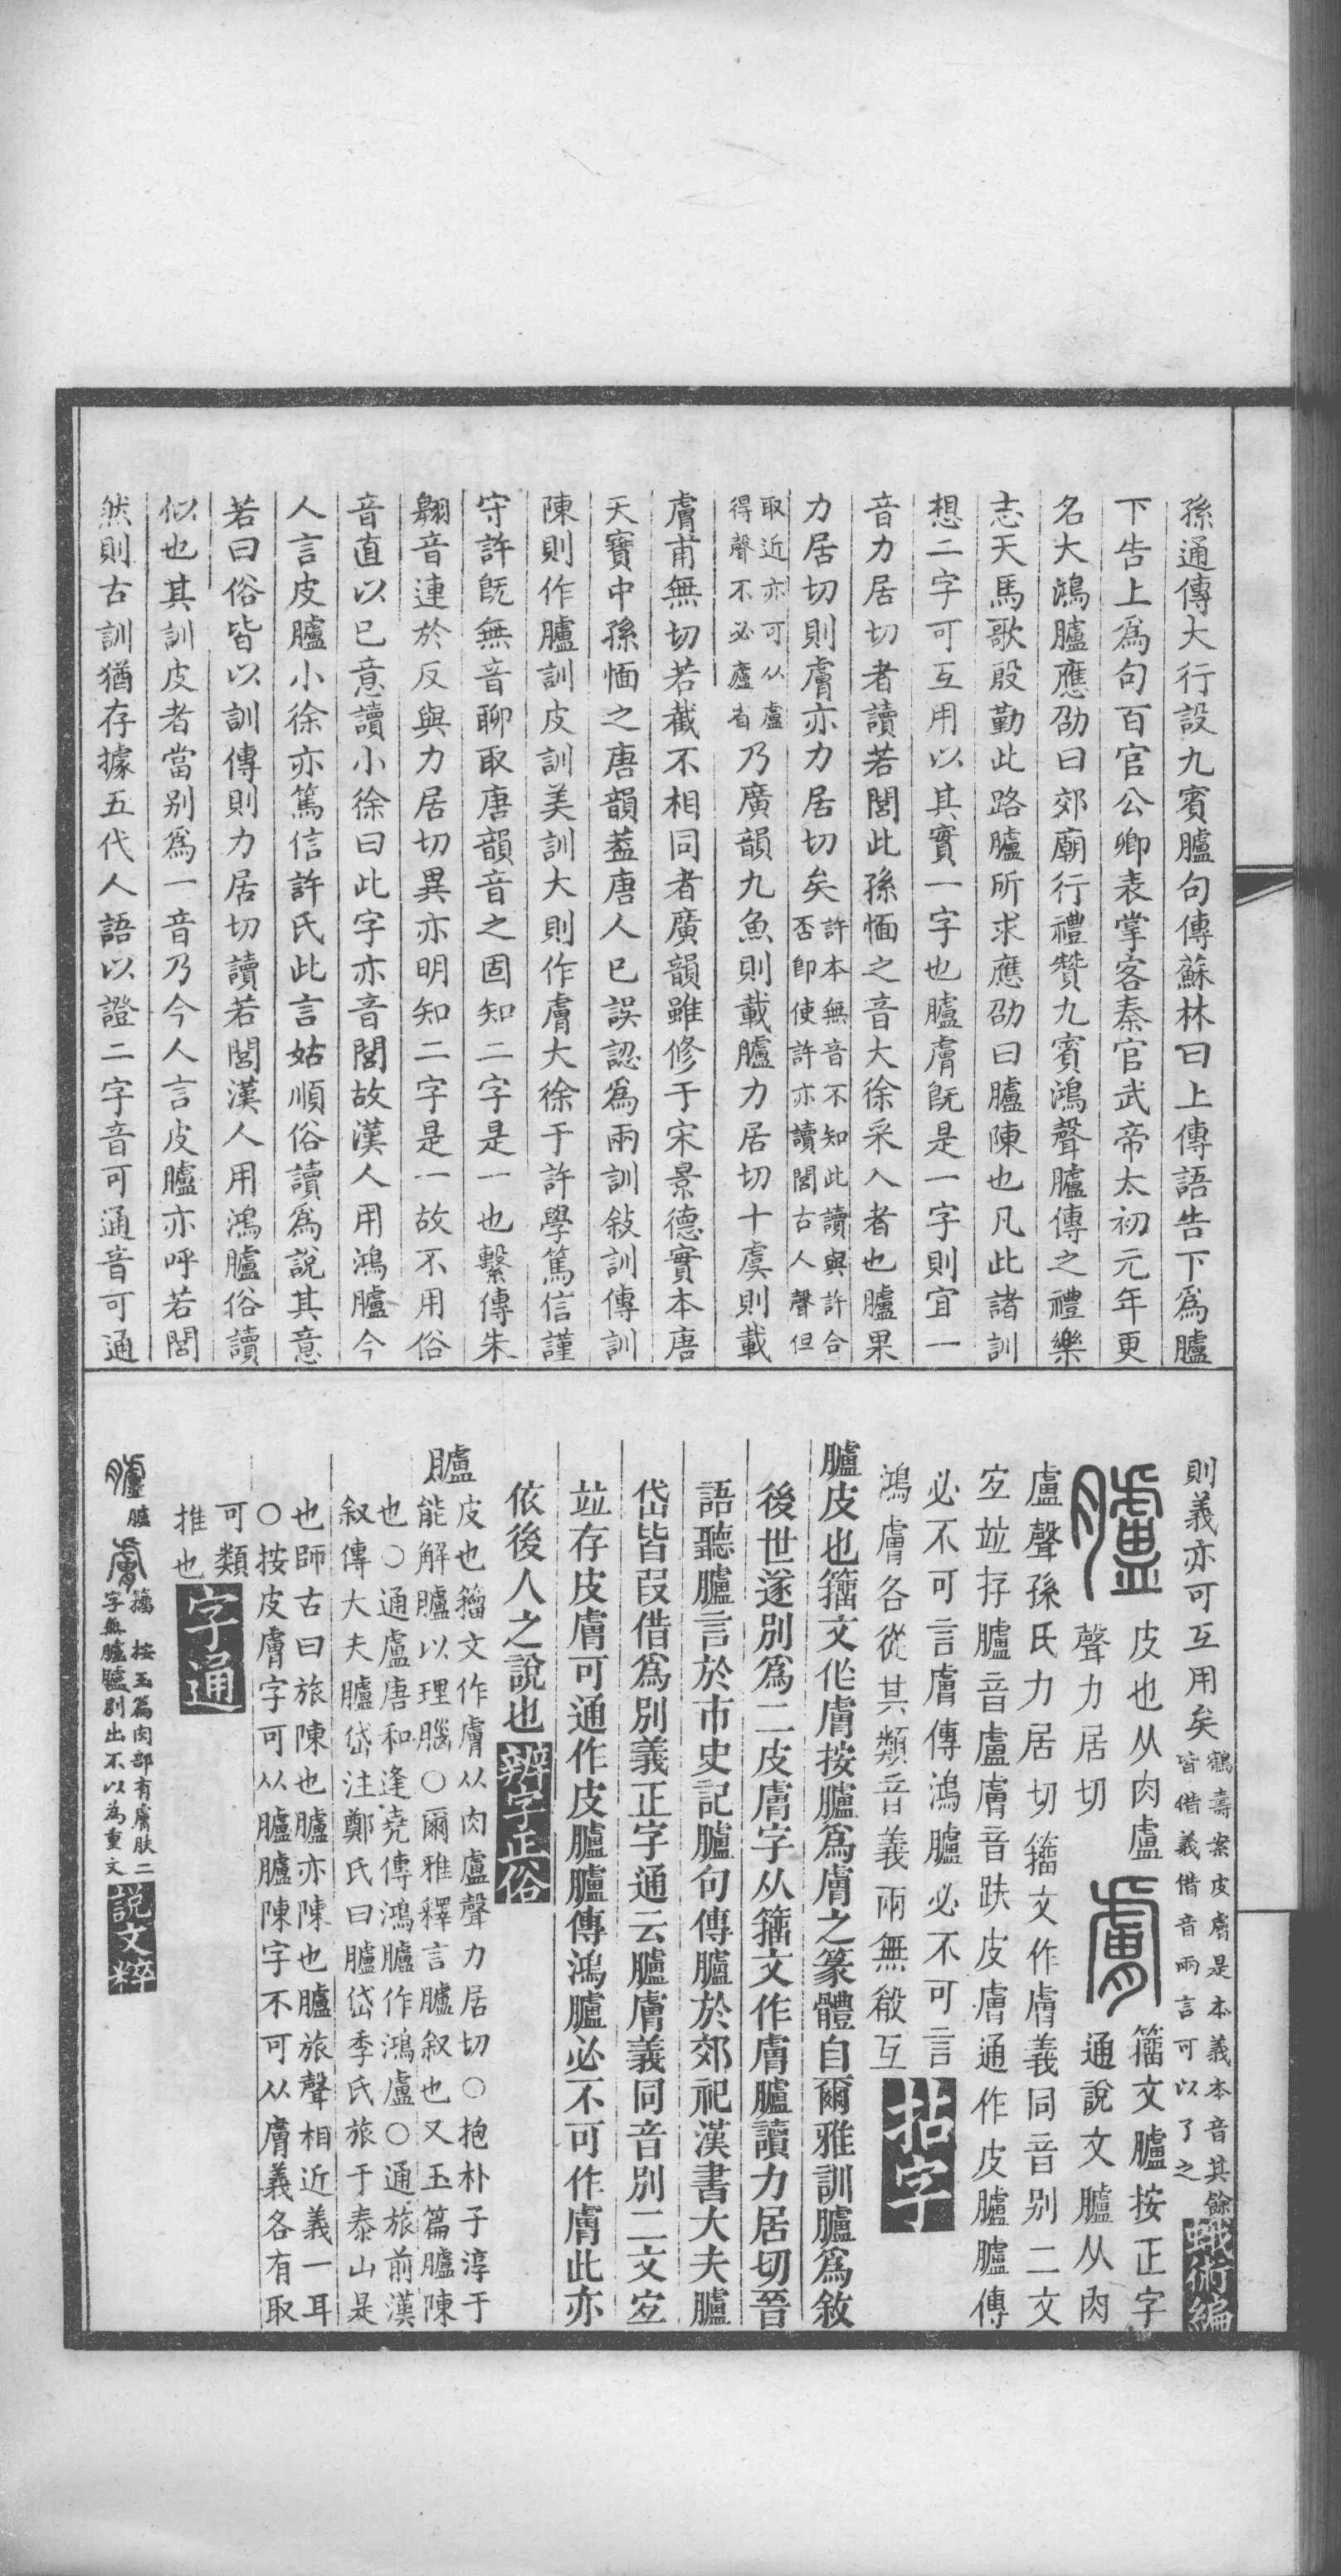 孫通傳大行設九賓臚句傳蘇林曰上傳語告下爲臚
下告上爲句百官公卿表掌客秦官武帝太初元年更
名大鴻臚應劭曰郊廟行禮贊九賓鴻聲臚傳之禮樂
志天馬歌殷勤此路臚所求應劭曰臚陳也凡此諸訓
想二字可互用以其實一字也臚膚旣是一字則宜一
音力居切者讀若閭此孫愐之音大徐采入者也臚果
力居切則膚亦力居切矣許本無音不知此讀與許合
否卽使許亦讀閭古人聲但
取近亦可从盧
得聲不必廬省乃廣韻九魚則載臚力居切十虞則載
膚甫無切若截不相同者廣韻雖修于宋景德實本唐
天寶中孫愐之唐韻葢唐人已誤認爲兩訓敍訓傳訓
陳則作臚訓皮訓美訓大則作膚大徐于許學篤信謹
守許旣無音聊取唐韻音之固知二字是一也繫傳朱
翱音連於反與力居切異亦明知二字是一故不用俗
音直以已意讀小徐曰此字亦音閭故漢人用鴻臚今
人言皮臚小徐亦篤信許氏此言姑順俗讀爲說其意
若曰俗皆以訓傳則力居切讀若閭漢人用鴻臚俗讀
似也其訓皮者當别爲一音乃今人言皮臚亦呼若閭
然則古訓猶存據五代人語以證二字音可通音可通
則義亦可互用矣鶴壽案皮膚是本義本音其餘
皆借義借音兩言可以了之蛾術編
臚皮也从肉盧
聲力居切膚籒文臚按正字
通說文臚从肉
盧聲孫氏力居切籒文作膚義同音别二文
宜竝存臚音盧膚音趺皮膚通作皮臚臚傳
必不可言膚傳鴻臚必不可言
鴻膚各從其類音義兩無殽互拈字
臚皮也籒文作膚按臚爲膚之篆體自爾雅訓臚爲敘
後世遂別爲二皮膚字从籒文作膚臚讀力居切晉
語聽臚言於市史記臚句傳臚於郊祀漢書大夫臚
岱皆叚借爲別義正字通云臚膚義同音別二文宜
竝存皮膚可通作皮臚臚傳鴻臚必不可作膚此亦
依後人之說也辨字正俗
臚皮也籒文作膚从肉盧聲力居切○抱朴子淳于
能解臚以理腦○爾雅釋言臚叙也又玉篇臚陳
也○通盧唐和逢堯傳鴻臚作鴻盧○通旅前漢
叙傳大夫臚岱注鄭氏曰臚岱季氏旅于泰山是
也師古曰旅陳也臚亦陳也臚旅聲相近義一耳
○按皮膚字可从臚臚陳字不可从膚義各有取
可類
推也字通
臚臚膚籒按玉篇肉部有膚肤二
字無臚臚别出不以為重文說文粹